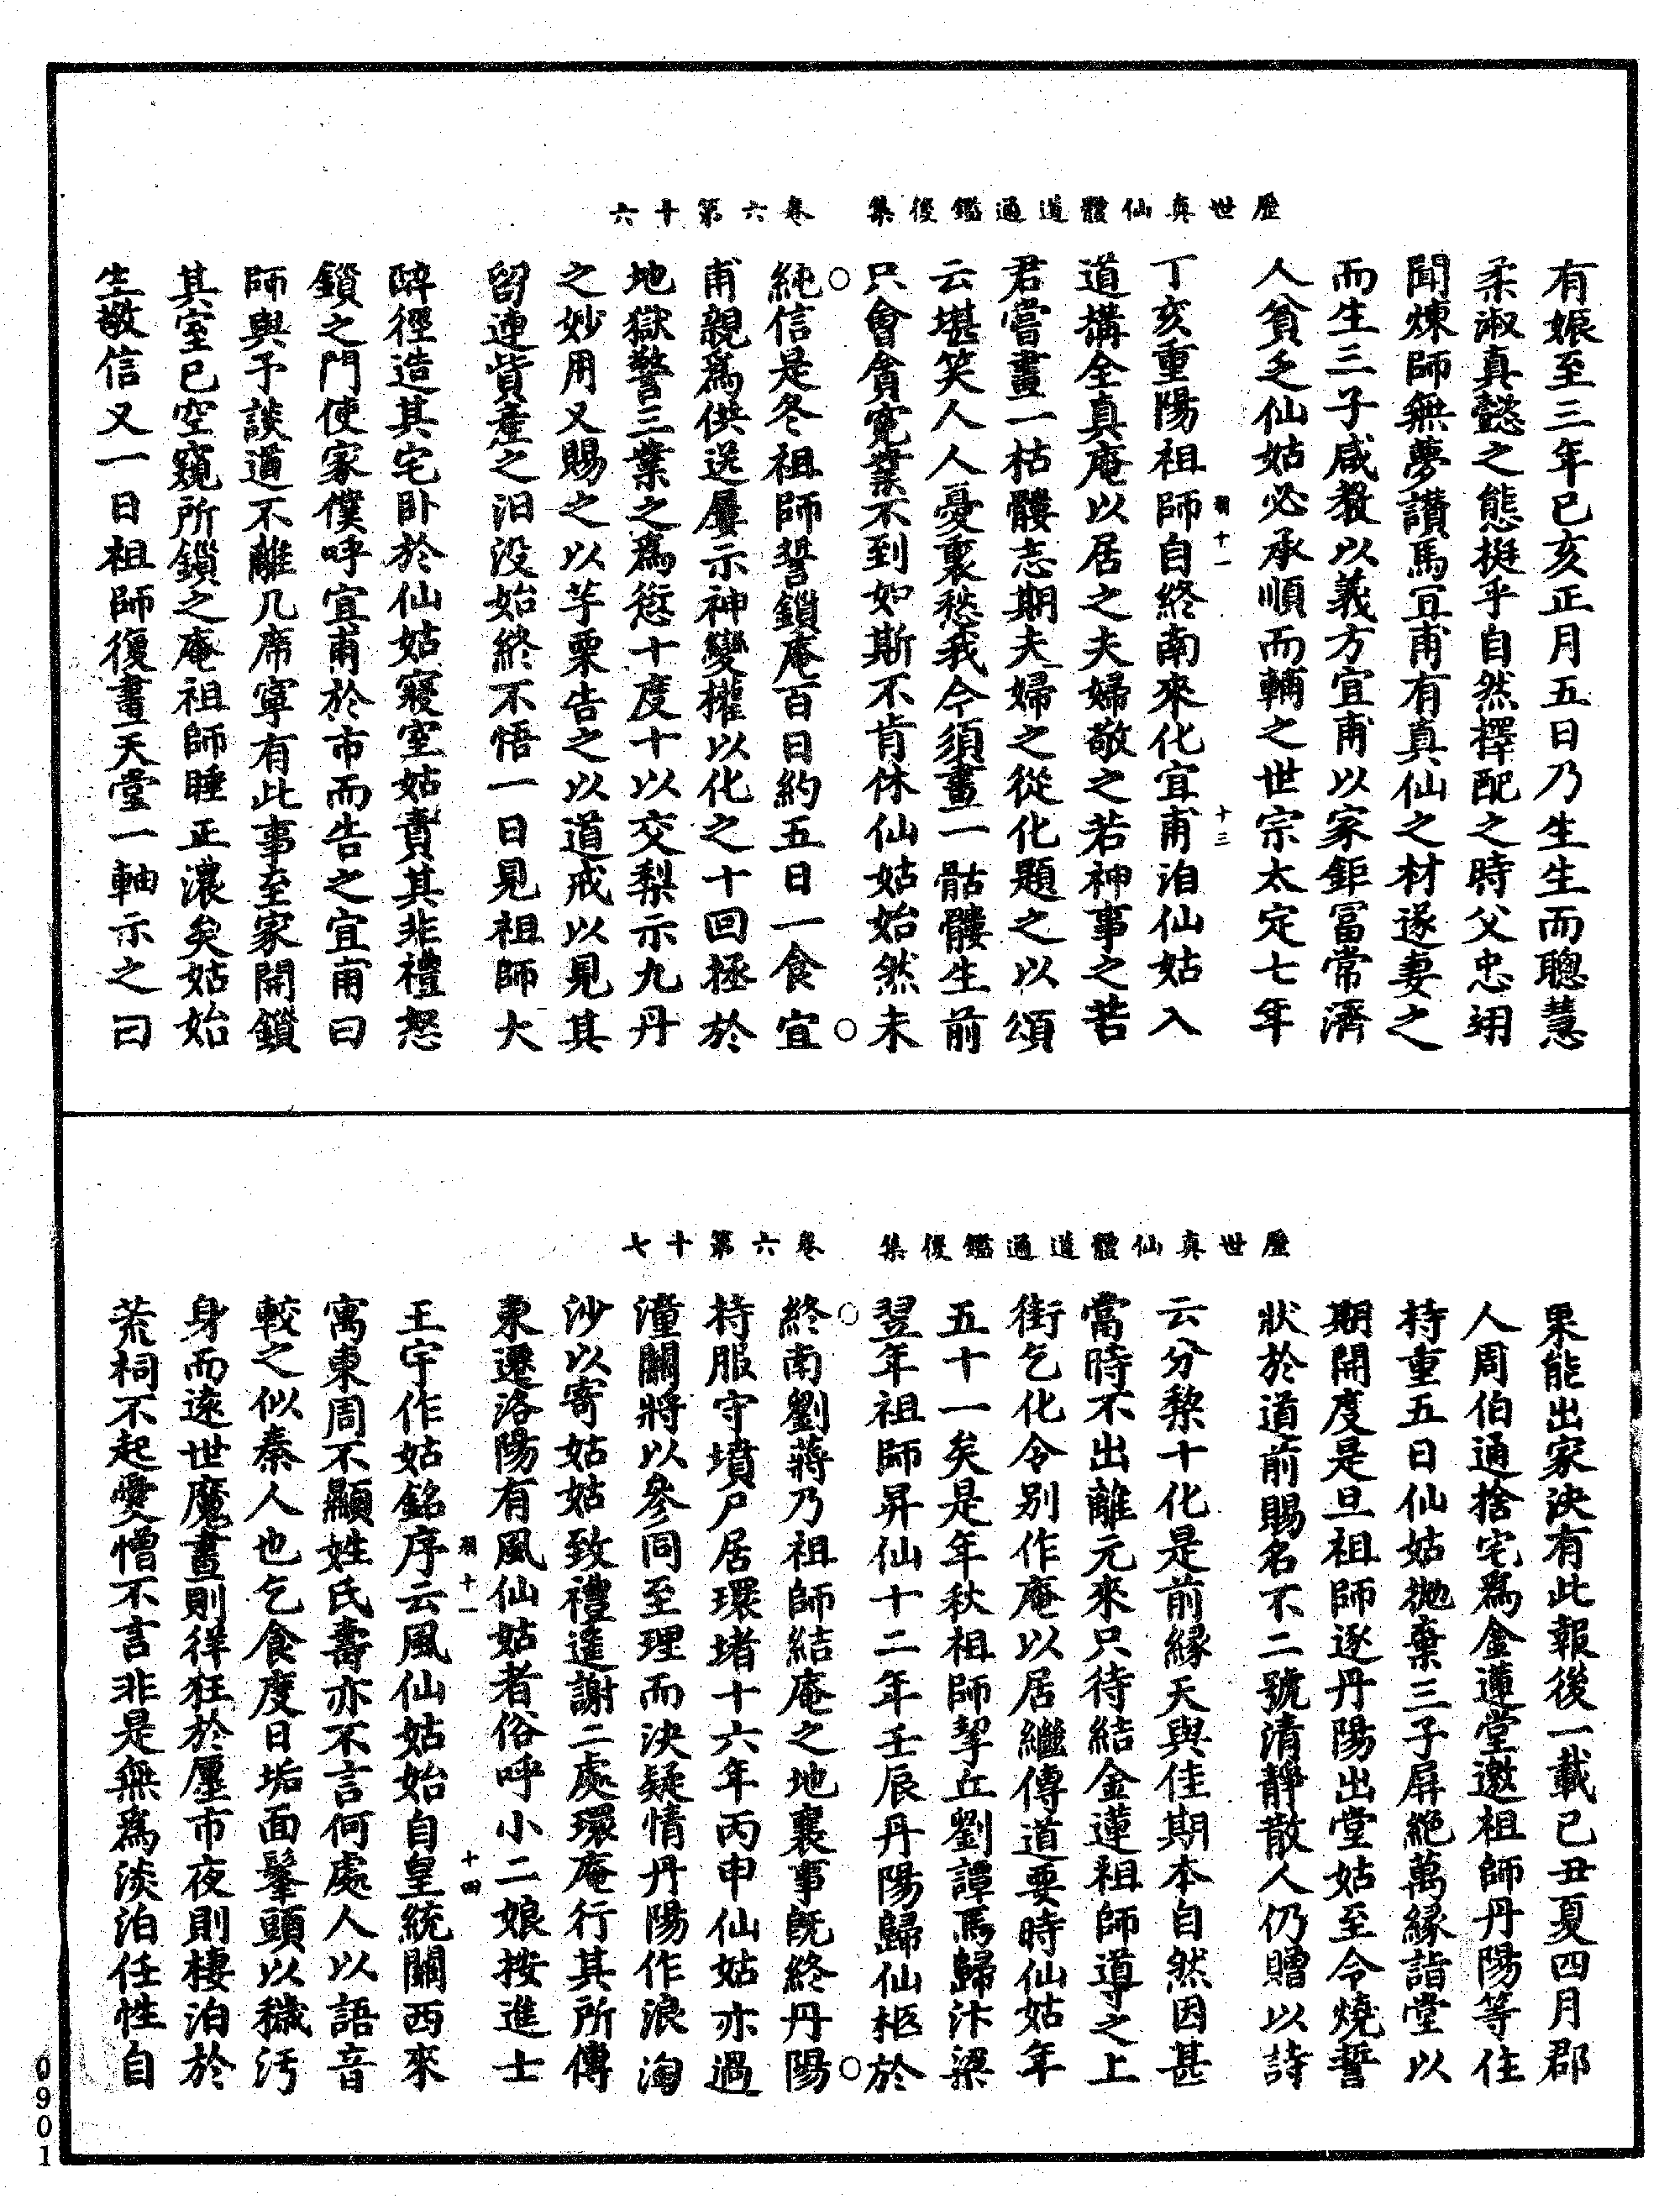 歷世真仙體道通鑑後集　卷六第十六
有娠至三年己亥正月五日乃生生而聰慧
柔淑真懿之態挺乎自然擇配之時父忠翊
聞煉師無夢讚馬宜甫有真仙之材遂妻之
而生三子咸教以義方宜甫以家鉅富常濟
人貧乏仙姑必承順而輔之世宗太定七年
十一　十三
丁亥重陽祖師自終南來化宜甫洎仙姑入
道搆全真庵以居之夫婦敬之若神事之若
君嘗畫一枯髏志期夫婦之從化題之以頌
云堪笑人人憂裏愁我今須畫一骷髏生前
只會貪寃業不到如斯不肯休仙姑始然未
純信是冬祖師誓鎖庵百日約五日一食宜
甫親爲供送屢示神變權以化之十回拯於
地獄警三業之爲愆十度十以交梨示九丹
之妙用又賜之以芋栗告之以道戒以見其
留連貲產之汩没始終不悟一日見祖師大
醉徑造其宅卧於仙姑寢室姑責其非禮怒
鎖之門使家僕呼宜甫於市而告之宜甫曰
師與予談道不離几席寧有此事至家開鎖
其室已空窺所鎖之庵祖師睡正濃矣姑始
生敬信又一日祖師復畫天堂一軸示之曰
歷世真仙體道通鑑後集　卷六第十七
果能出家決有此報後一載己丑夏四月郡
人周伯通捨宅爲金蓮堂邀祖師丹陽等住
持重五日仙姑拋棄三子屏絶萬緣詣堂以
期開度是旦祖師逐丹陽出堂姑至令燒誓
狀於道前賜名不二號清靜散人仍贈以詩
云分梨十化是前緣天與佳期本自然因甚
當時不出離元來只待結金蓮祖師導之上
街乞化令别作庵以居繼傳道要時仙姑年
五十一矣是年秋祖師挈丘劉譚馬歸汴梁
翌年祖師昇仙十二年壬辰丹陽歸仙柩於
終南劉蔣乃祖師結庵之地襄事旣終丹陽
持服守墳尸居環堵十六年丙申仙姑亦過
潼關將以參同至理而決疑情丹陽作浪淘
沙以寄姑姑致禮遙謝二處環庵行其所傳
東遷洛陽有風仙姑者俗呼小二娘按進士
十一　十四
王宇作姑銘序云風仙姑始自皇統關西來
寓東周不顯姓氏壽亦不言何處人以語音
較之似秦人也乞食度日垢面鬅頭以穢汚
身而遠世魔晝則徉狂於㕓市夜則棲泊於
荒祠不起愛憎不言非是無爲淡泊任性自
0901